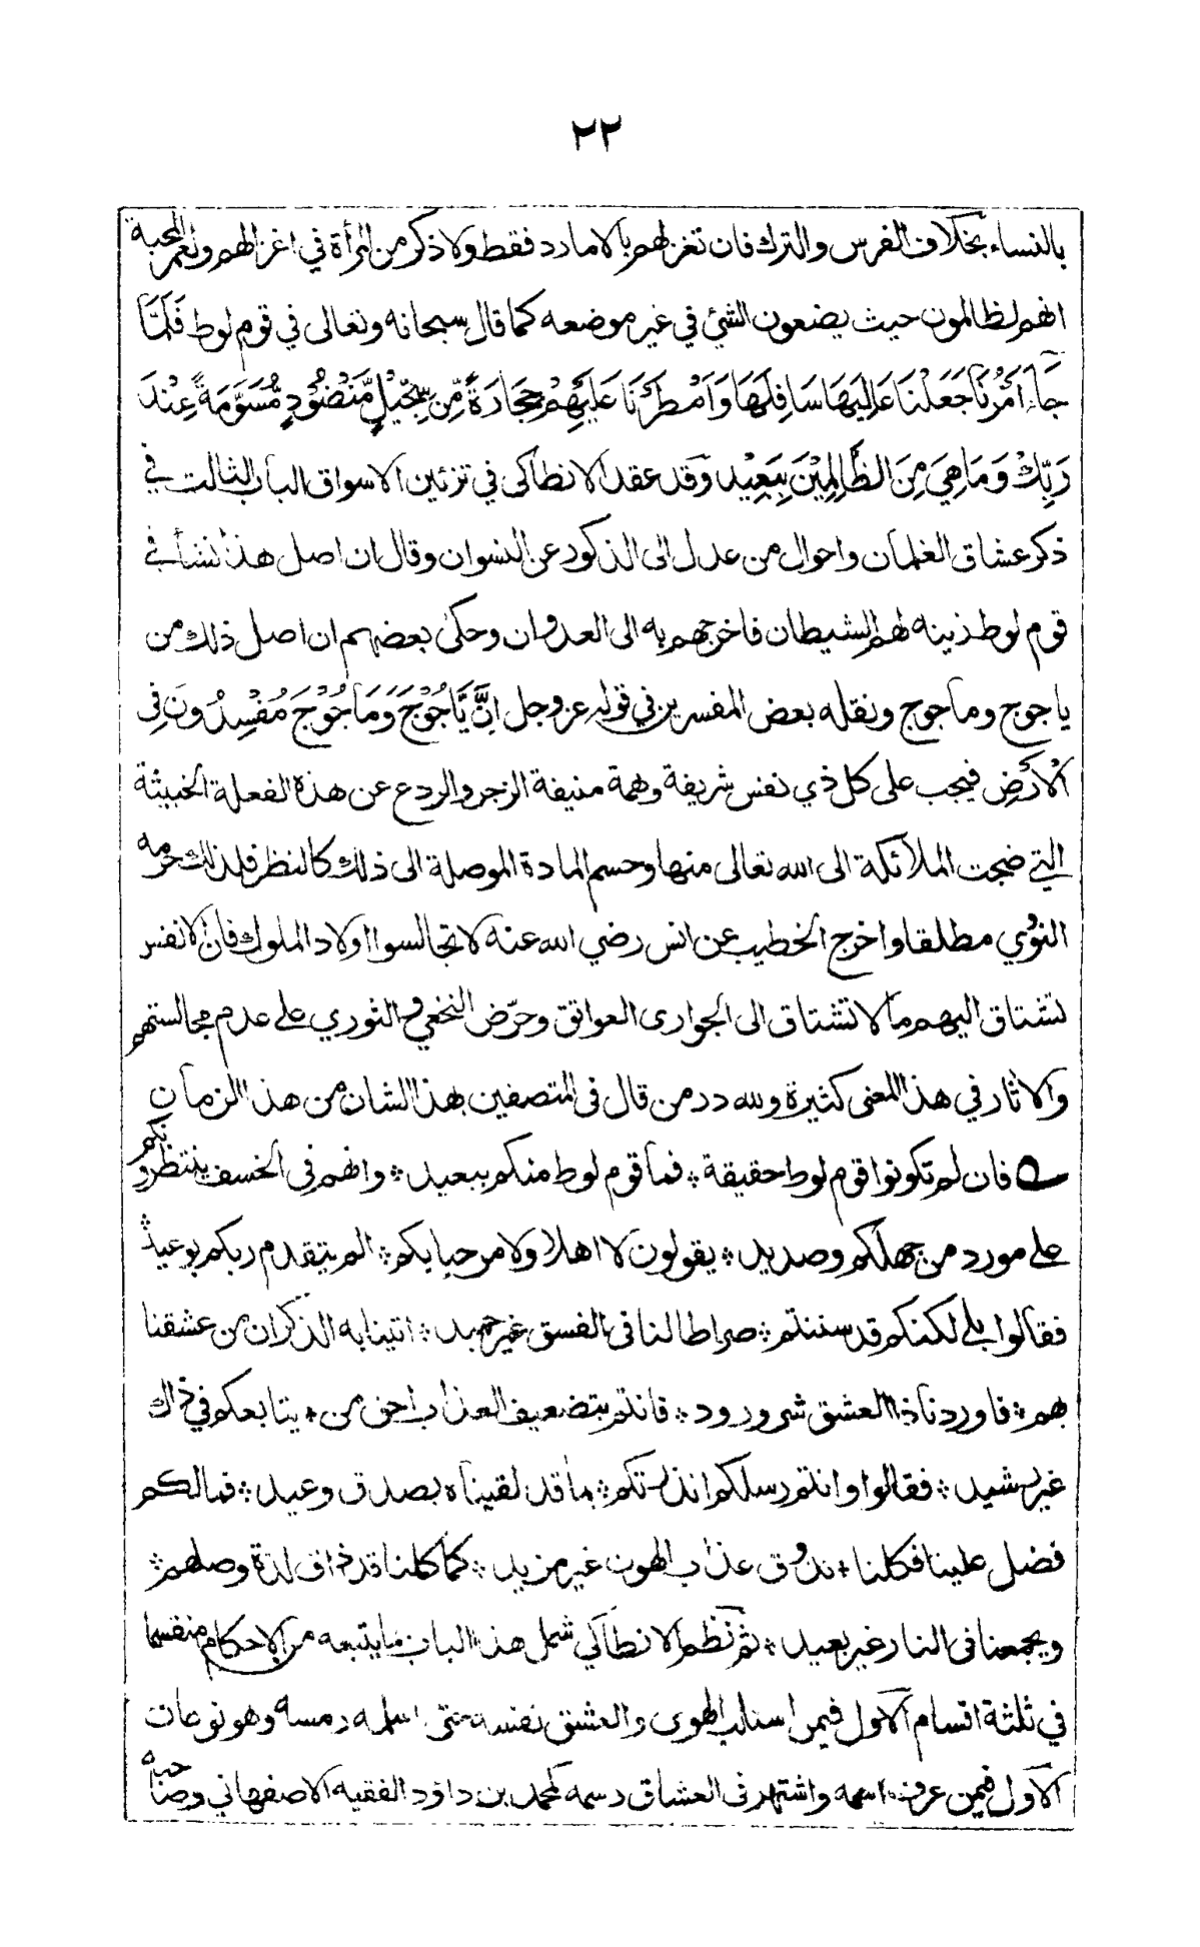 ٢٢
بالنساء بخلاف الفرس والترك فان تغزلهم بالامارد فقط ولا ذكر من المرأة في اغزالهم ولعمر المحبة
انهم لظالمون حيث يضعون الشئ في غير موضعه كما قال سبحانه وتعالى في قوم لوط فَلَمَّا
جَآءَ اَمْرُنَا جَعَلْنَا عَالِيَهَا سَافِلَهَا وَاَمْطَرْنَا عَلَيْهِمْ حِجَارَةً مِّن سِجِّيْلٍ مَّنْضُوْدٍ مُّسَوَّمَةً عِنْدَ
رَبِّكَ وَمَا هِيَ مِنَ الظَّالِمِيْنَ بِبَعِيْد وقد عقد الانطاكى في تزئين الاسواق الباب الثالث في
ذكر عشاق الغلمان واحوال من عدل الى الذكور عن النسوان وقال ان اصل هذا نشأ في
قوم لوط زينه لهم الشيطان فاخرجهم به الى العدوان وحكى بعضهم ان اصل ذلك من
ياجوج وماجوج ونقله بعض المفسرين في قوله عز وجل اِنَّ يَاْجُوْجَ وَمَاْجُوْجَ مُفْسِدُوْنَ فِى
الْاَرْضِ فيجب على كل ذي نفس شريفة وهمة منيفة الزجر والردع عن هذه الفعلة الخبيثة
التي ضجت الملآئكة الى الله تعالى منها وحسم المادة الموصلة الى ذلك كالنظر فلذلك حرمه
النوُّي مطلقا واخرج الخطيب عن انس رضي الله عنه لا تجالسوا اولاد الملوك فان الانفس
تشتاق اليهم ما لا تشتاق الى الجوارى العواتق وحرّض النخعي والثوري على عدم مجالستهم
والاثار في هذا المعنى كثيرة ولله در من قال فى المتصفين بهذا الشان من هذا الزمان
فان لم تكونوا قوم لوط حقيقة ؞ فما قوم لوط منكم ببعيد ؞ وانهم فى الخسف ينتظرونكم
على مورد من جهلكم وصديد ؞ يقولون لا اهلا ولا مرحبا بكم ؞ الم يتقدم ربكم بوعيد ؞
فقالوا بلى لكنكم قد سننتم ؞ صراطا لنا فى الفسق غير حميد ؞ اتينا به الذكران من عشقنا
بهم ؞ فاوردنا ذا العشق شر ورود ؞ فانتم بتضعيف العذاب احق من ؞ يتابعكم في ذاك
غير رشيد ؞ فقالوا وانتم رسلكم انذرتكم ؞ بما قد لقيناه بصدق وعيد ؞ فما لكم
فضل علينا فكلنا ؞ نذوق عذاب الهون غير مزيد ؞ كما كلنا قد ذاق لذة وصلهم ؞
ويجمعنا فى النار غير بعيد ؞ ثم نظم الانطاكي شمل هذا الباب ما يتبعه من الاحكام منقسما
في ثلثة اقسام الاول فيمن استلب الهوى والعشق نفسه حتى اسلمه رمسه وهو نوعان
الاول فيمن عرف اسمه واشتهر فى العشاق رسمه كمحمد بن داؤد الفقيه الاصفهاني وصاحبه